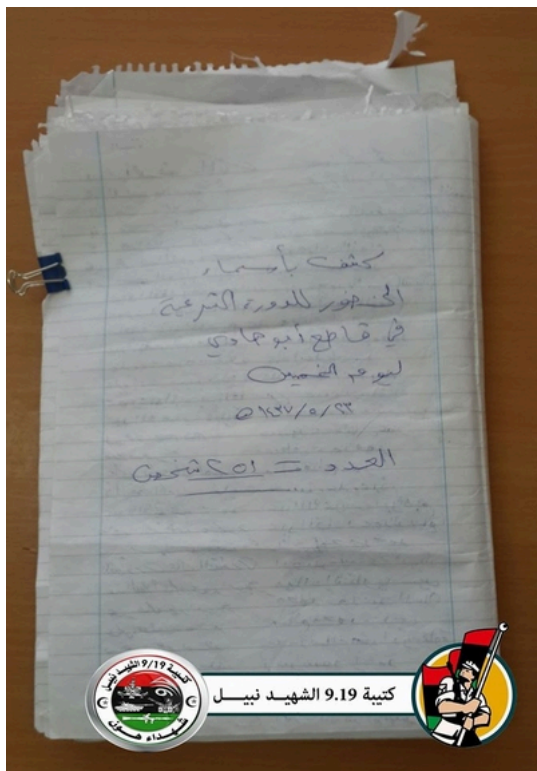 كشف بأسماء
الحضور للدورة الشرعية
في قاطع أبو هادي
ليوم الخميس
٢٣/٥/١٤٣٧ هـ
العدد = ٢٥١ شخص
كتيبة 9.19 الشهيد نبيل
كتيبة 9/19 الشهيد نبيل
شهداء هون